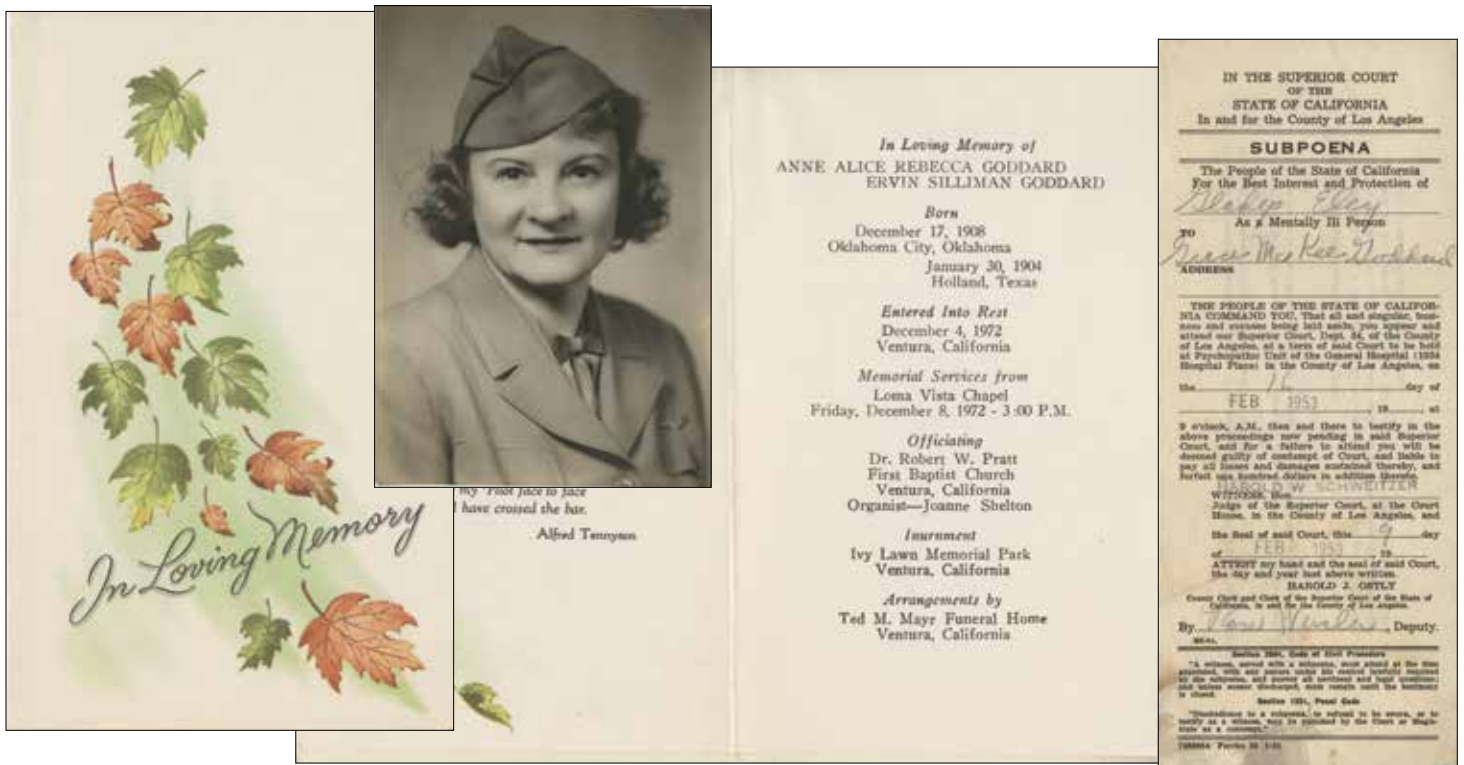 In Loving Memory
my Pilot face to face
have crossed the bar.
Alfred Tennyson
In Loving Memory of
ANNE ALICE REBECCA GODDARD
ERVIN SILLIMAN GODDARD
Born
December 17, 1908
Oklahoma City, Oklahoma
January 30, 1904
Holland, Texas
Entered Into Rest
December 4, 1972
Ventura, California
Memorial Services from
Loma Vista Chapel
Friday, December 8, 1972 - 3:00 P.M.
Officiating
Dr. Robert W. Pratt
First Baptist Church
Ventura, California
Organist—Joanne Shelton
Inurnment
Ivy Lawn Memorial Park
Ventura, California
Arrangements by
Ted M. Mayr Funeral Home
Ventura, California
IN THE SUPERIOR COURT
OF THE
STATE OF CALIFORNIA
In and for the County of Los Angeles
SUBPOENA
The People of the State of California
For the Best Interest and Protection of
Eley
As a Mentally Ill Person
TO
Grace McKee Goddard
ADDRESS
THE PEOPLE OF THE STATE OF CALIFOR-
NIA COMMAND YOU, That all and singular, busi-
ness and excuses being laid aside, you appear and
attend our Superior Court, Dept. 54, of the County
of Los Angeles, at a term of said Court to be held
at Psychopathic Unit of the General Hospital (1934
Hospital Place) in the County of Los Angeles, on
the 16 day of
FEB 1953, 19 , at
9 o'clock, A.M., then and there to testify in the
above proceedings now pending in said Superior
Court, and for a failure to attend you will be
deemed guilty of contempt of Court, and liable to
pay all losses and damages sustained thereby, and
forfeit one hundred dollars in addition thereto.
HAROLD W SCHWEITZER
WITNESS, Hon.
Judge of the Superior Court, at the Court
House, in the County of Los Angeles, and
the Seal of said Court, this 9 day
of FEB 1953, 19
ATTEST my hand and the seal of said Court,
the day and year last above written.
HAROLD J. OSTLY
County Clerk and Clerk of the Superior Court of the State of
California, in and for the County of Los Angeles.
By , Deputy.
SEAL
Code of Civil Procedure
"A witness, served with a subpoena, must attend at the time
appointed, with any papers under his control lawfully required
by the subpoena, and answer all pertinent and legal questions;
and unless sooner discharged, must remain until the testimony
is closed.
Section 1331, Penal Code
"Disobedience to a subpoena, or refusal to be sworn, or to
testify as a witness, may be punished by the Court or Magis-
trate as a contempt."